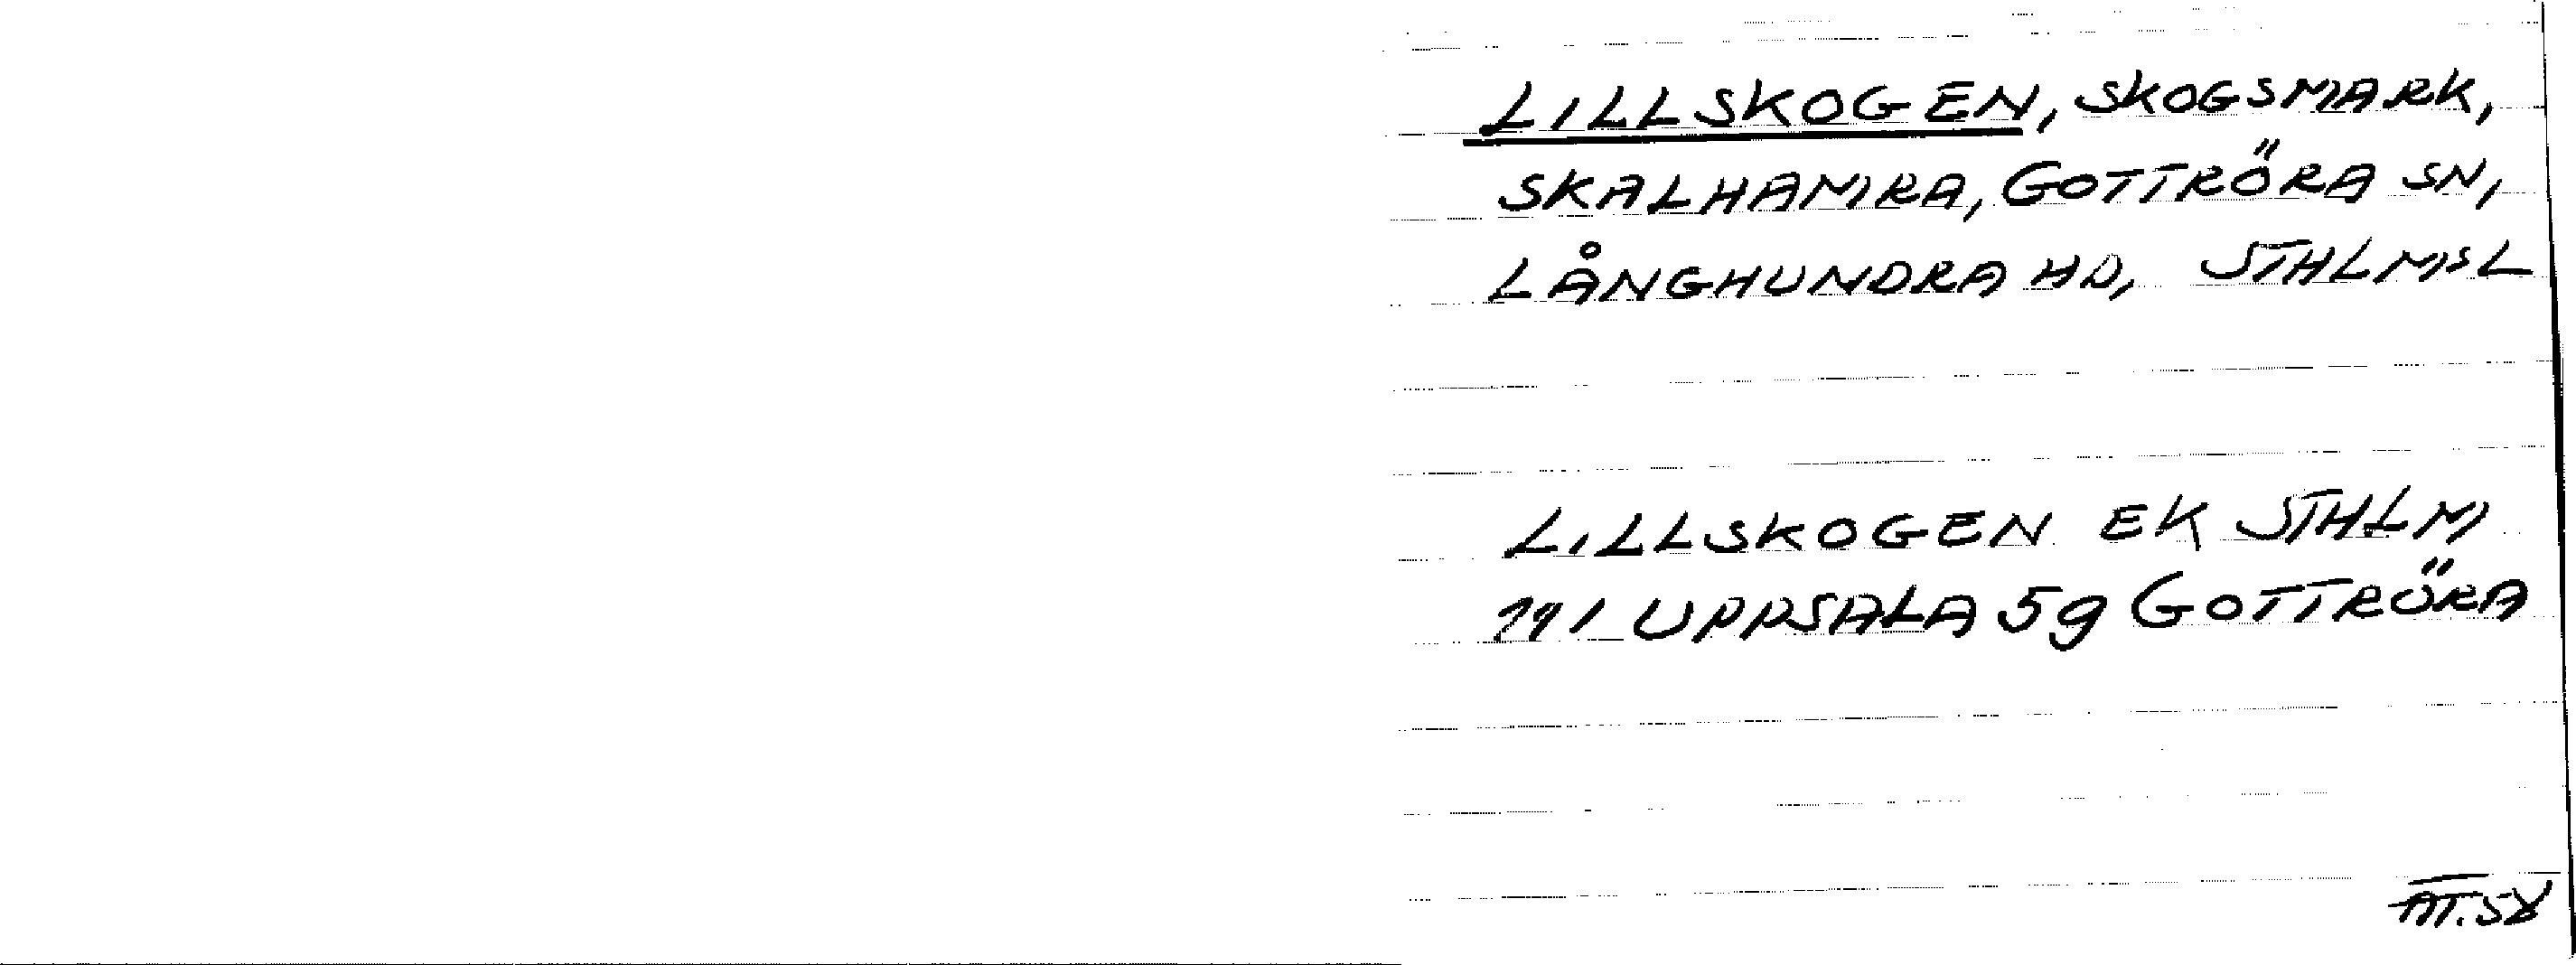 LILLSKOGEN, SKOGSMARK,
SKALHAMRA, GOTTRÖRA SN,
LÅNGHUNDRA HD, STHLMSL
LILLSKOGEN EK STHLM
111 UPPSALA 5g GOTTRÖRA